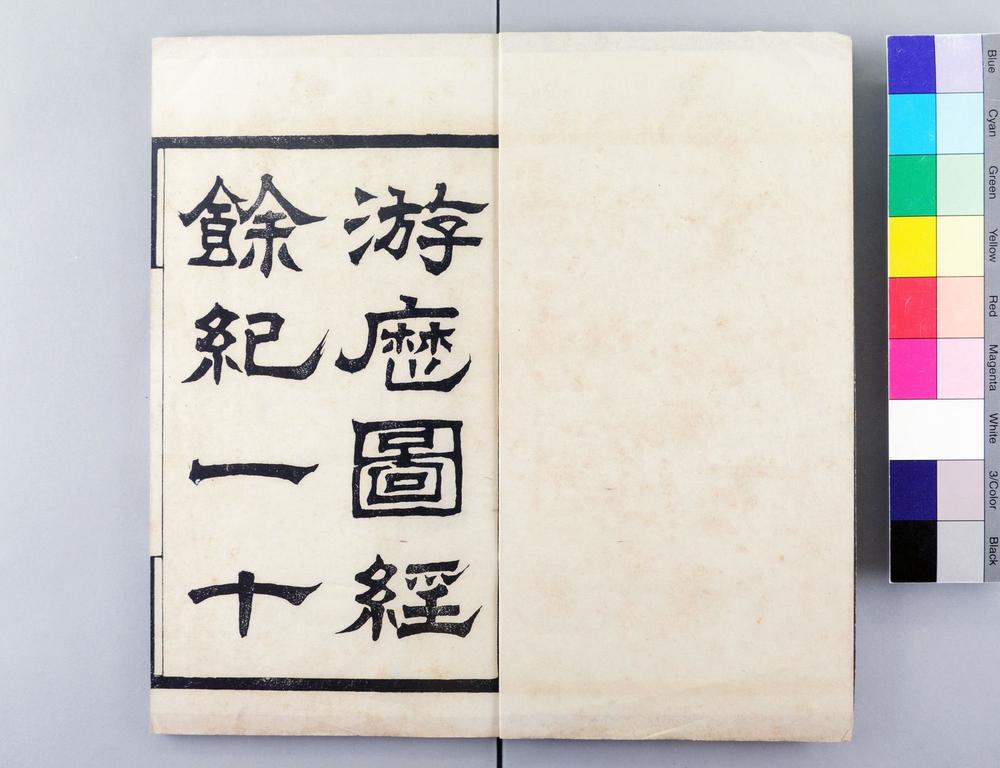 游歷圖經
餘紀一十
Blue
Cyan
Green
Yellow
Red
Magenta
White
3/Color
Black